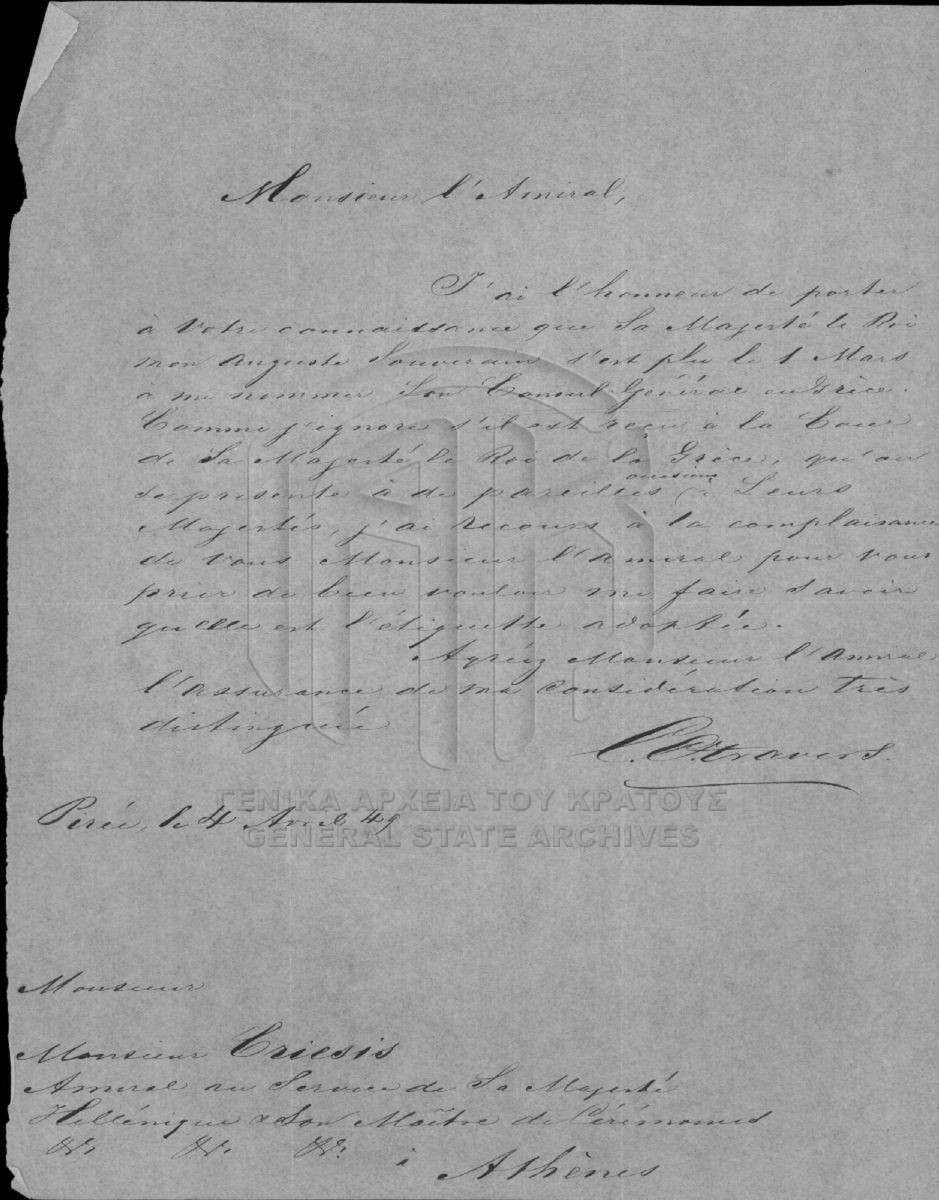 Monsieur l'Amiral,
J'ai l'honneur de porter
à Votre connaissance que Sa Majesté le Roi
mon Auguste Souverain s'est plu le 1 Mars
à me nommer Son Consul Général en Grèce.
Comme j'ignore s'il est reçu à la Cour
de Sa Majesté le Roi de la Grèce, qu'on
se présente à de pareilles occasions à Leurs
Majestés, j'ai recours à la complaisance
de Vous Monsieur l'Amiral pour vous
prier de bien vouloir me faire savoir
quelle est l'étiquette adoptée.
Agréez Monsieur l'Amiral
l'assurance de ma considération très
distinguée
Travers.
Pirée, le 4 Avril 49
ΓΕΝΙΚΑ ΑΡΧΕΙΑ ΤΟΥ ΚΡΑΤΟΥΣ
GENERAL STATE ARCHIVES
Monsieur
Monsieur Criesis
Amiral au Service de Sa Majesté
Hellénique & Son Maître de Cérémonies
&. &. &. à Athènes